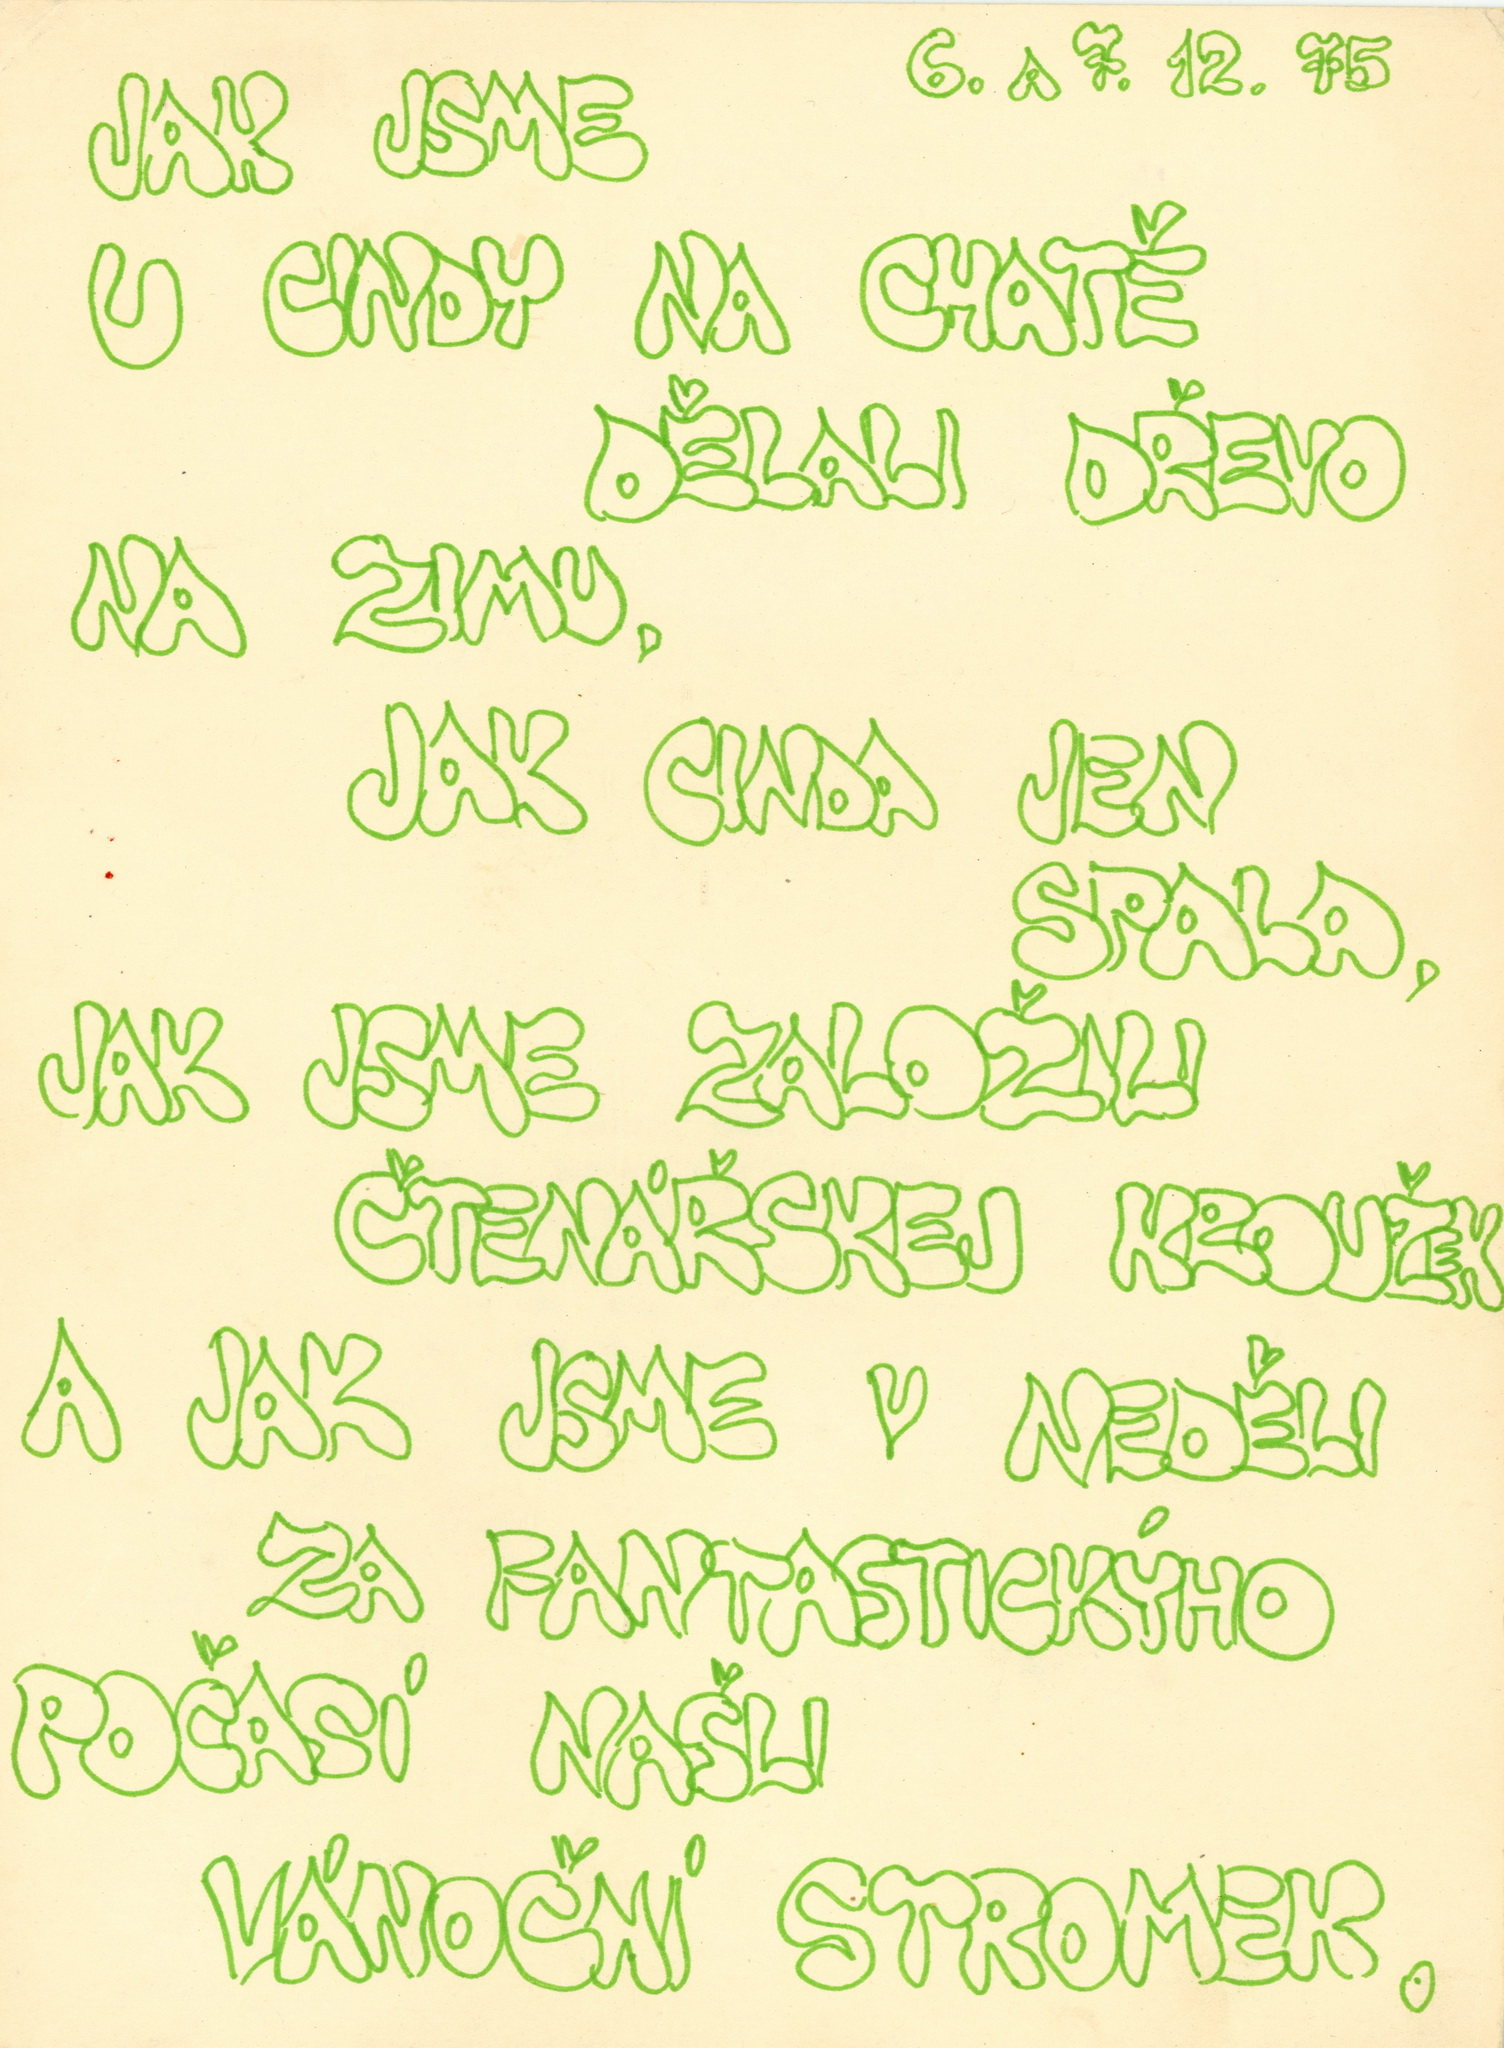 6. A 7. 12. 75
JAK JSME
U CINDY NA CHATĚ
DĚLALI DŘEVO
NA ZIMU,
JAK CINDA JEN
SPALA,
JAK JSME ZALOŽILI
ČTENÁŘSKEJ KROUŽEK
A JAK JSME V NEDĚLI
ZA FANTASTICKÝHO
POČASÍ NAŠLI
VÁNOČNÍ STROMEK.